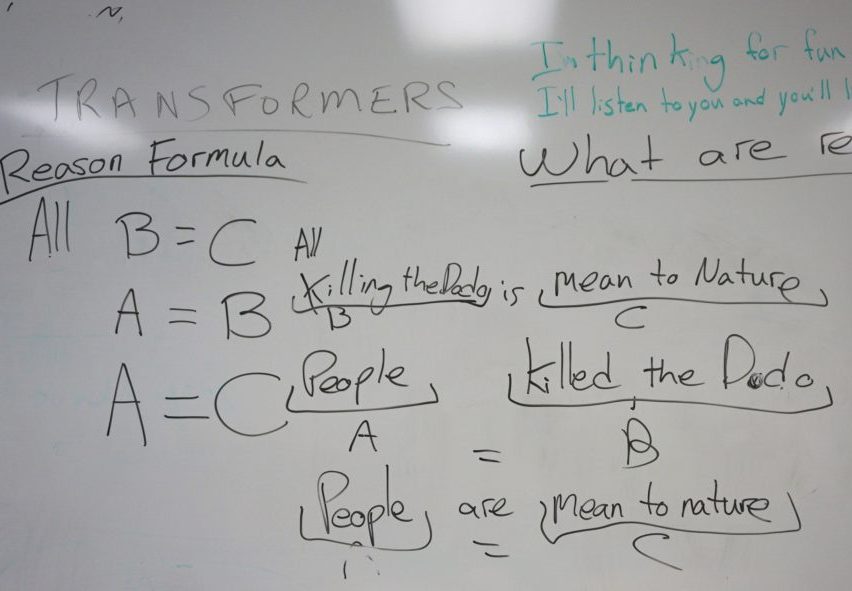 In thinking for fun
I'll listen to you and you'll
TRANSFORMERS
What are
Reason Formula
All B = C
All
Killing the Dodo is mean to Nature
B C
A = B
People killed the Dodo
A = B
A = C
People are mean to nature
= C